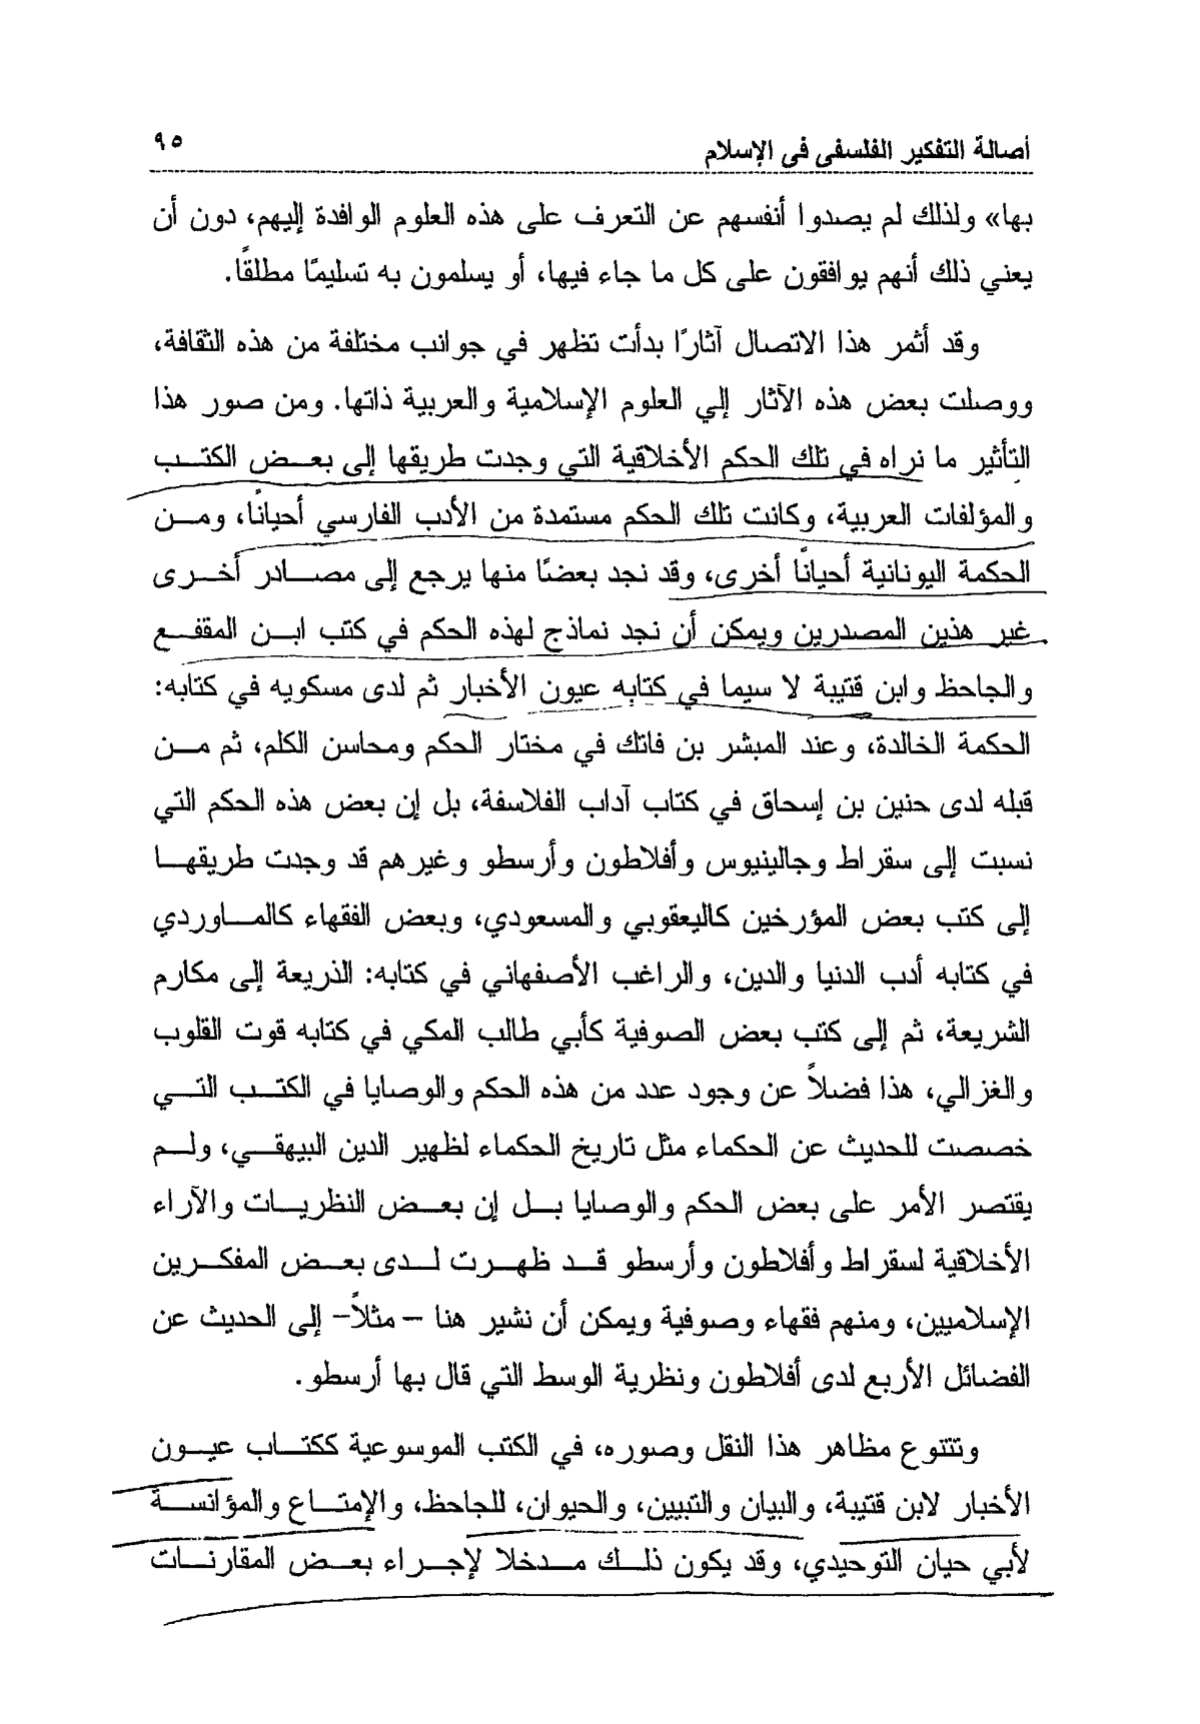 أصالة التفكير الفلسفى فى الإسلام ٩٥
بها» ولذلك لم يصدوا أنفسهم عن التعرف على هذه العلوم الوافدة إليهم، دون أن
يعني ذلك أنهم يوافقون على كل ما جاء فيها، أو يسلمون به تسليمًا مطلقًا.
وقد أثمر هذا الاتصال آثارًا بدأت تظهر في جوانب مختلفة من هذه الثقافة،
ووصلت بعض هذه الآثار إلي العلوم الإسلامية والعربية ذاتها. ومن صور هذا
التأثير ما نراه في تلك الحكم الأخلاقية التي وجدت طريقها إلى بعض الكتب
والمؤلفات العربية، وكانت تلك الحكم مستمدة من الأدب الفارسي أحيانًا، ومن
الحكمة اليونانية أحيانًا أخرى، وقد نجد بعضًا منها يرجع إلى مصادر أخرى
غير هذين المصدرين ويمكن أن نجد نماذج لهذه الحكم في كتب ابن المقفع
والجاحظ وابن قتيبة لا سيما في كتابه عيون الأخبار ثم لدى مسكويه في كتابه:
الحكمة الخالدة، وعند المبشر بن فاتك في مختار الحكم ومحاسن الكلم، ثم من
قبله لدى حنين بن إسحاق في كتاب آداب الفلاسفة، بل إن بعض هذه الحكم التي
نسبت إلى سقراط وجالينيوس وأفلاطون وأرسطو وغيرهم قد وجدت طريقها
إلى كتب بعض المؤرخين كاليعقوبي والمسعودي، وبعض الفقهاء كالماوردي
في كتابه أدب الدنيا والدين، والراغب الأصفهاني في كتابه: الذريعة إلى مكارم
الشريعة، ثم إلى كتب بعض الصوفية كأبي طالب المكي في كتابه قوت القلوب
والغزالي، هذا فضلاً عن وجود عدد من هذه الحكم والوصايا في الكتب التي
خصصت للحديث عن الحكماء مثل تاريخ الحكماء لظهير الدين البيهقي، ولم
يقتصر الأمر على بعض الحكم والوصايا بل إن بعض النظريات والآراء
الأخلاقية لسقراط وأفلاطون وأرسطو قد ظهرت لدى بعض المفكرين
الإسلاميين، ومنهم فقهاء وصوفية ويمكن أن نشير هنا – مثلاً– إلى الحديث عن
الفضائل الأربع لدى أفلاطون ونظرية الوسط التي قال بها أرسطو.
وتتنوع مظاهر هذا النقل وصوره، في الكتب الموسوعية ككتاب عيون
الأخبار لابن قتيبة، والبيان والتبيين، والحيوان، للجاحظ، والإمتاع والمؤانسة
لأبي حيان التوحيدي، وقد يكون ذلك مدخلا لإجراء بعض المقارنات